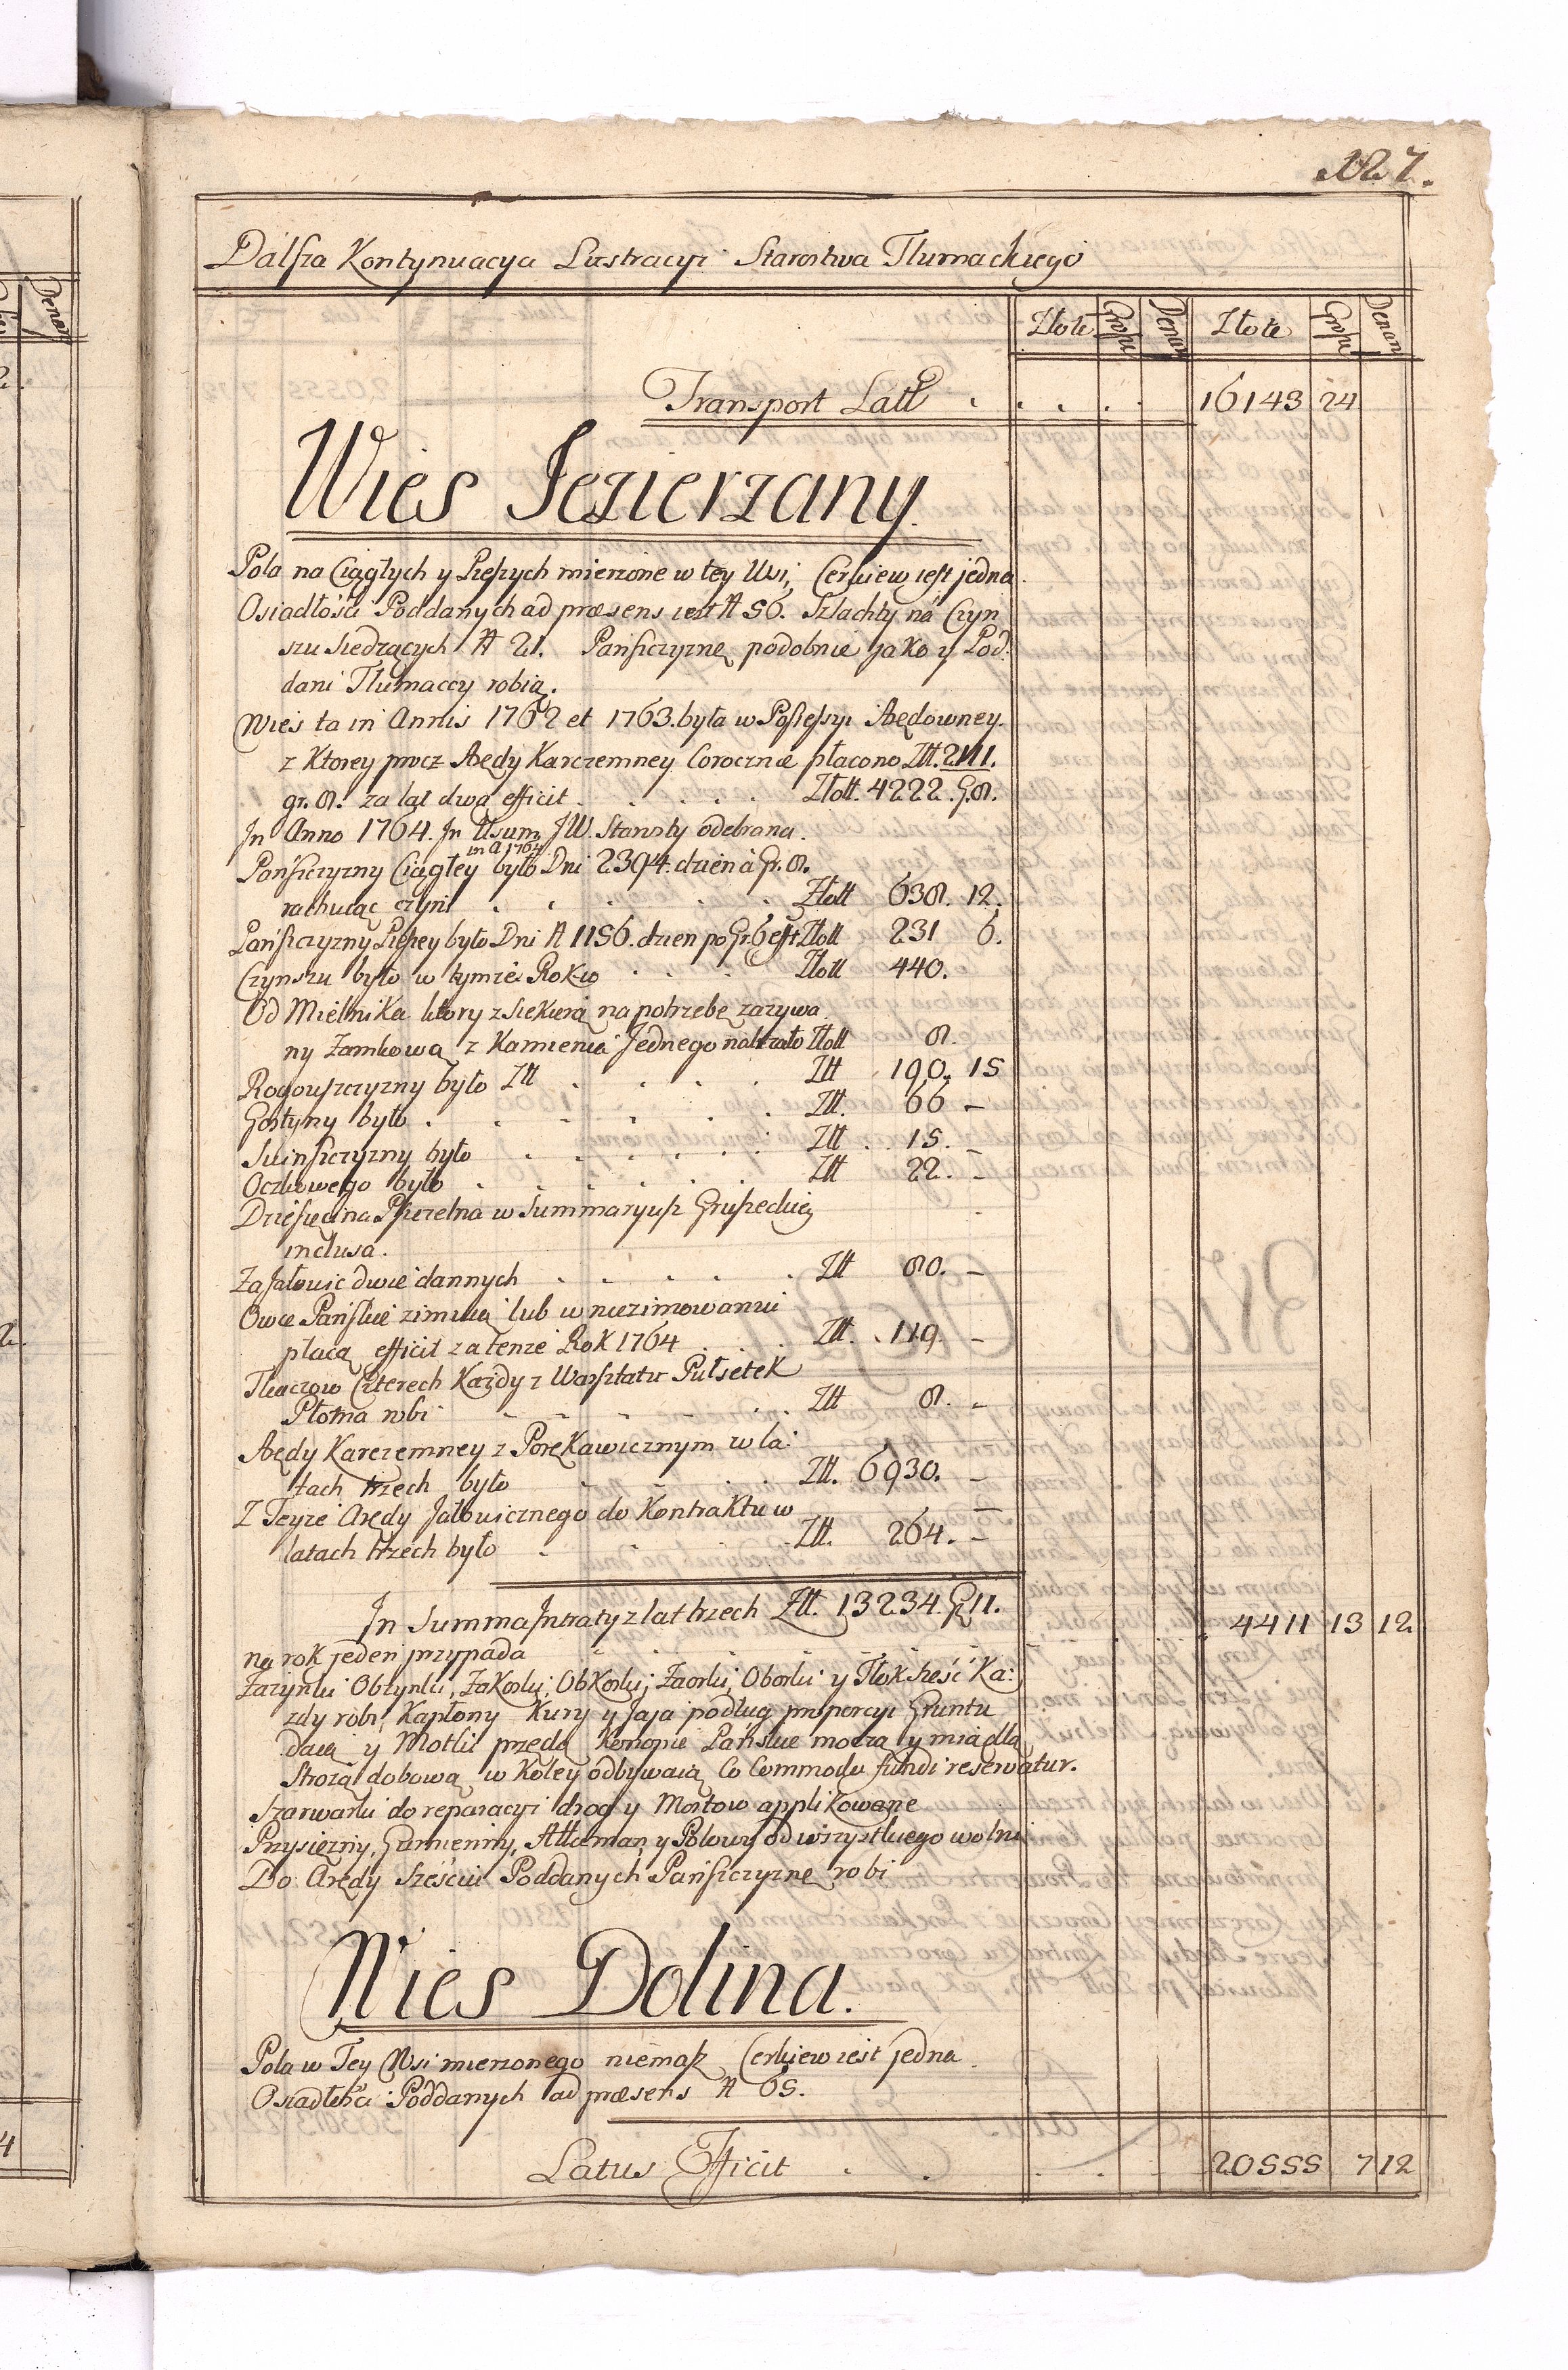 N2 7.
Dalsza Kontynuacya Lustracyi Starostwa Tłumackiego
Złote Grosze Denar Złote Grosze Denar
Transport Latt . . . . . 16143 24
Wies Jezierzany
Pola na Ciągłych y Pieszych mierzone w tey Wsi, Cerkiew iest jedna.
Osiadłości Poddanych ad præsens iest N 56. Szlachty na Czyn
szu siedzących N 21. Pańszczyznę podobnie jako y Pod:
dani Tłumaccy robią.
Wieś ta in Annis 1762 et 1763. była w Possessyi Arędowney.
z Ktorey procz Arędy Karczemney Corocznie płacono Złt. 2111.
gr. 8. za lat dwa efficit . . . . . Złott. 4222. G. 8.
In Anno 1764. In Usum JW. Starosty odebrana.
in A 1764
Pańszczyzny Ciągłey było Dni 2394. dzień à Gr. 8.
rachuiąc czyni . . . . . Złott 638. 12.
Pańszczyzny Pieszey było Dni N 1156. dzien po Gr. 6 est Złott 231 6.
Czynszu było w tymże Roku . . . Złott 440.
Od Mielnika ktory z siekierą na potrzebę zazywa
ny Zamkową z Kamienia Jednego nabrało Złott 8.
Rogowszczyzny było Złt . . . . Złt 190. 15
Gostyny było . . . . . . Złt. 66 –
Swinszczyzny było . . . . . Złt . 15. –
Oczkowego było . . . . . . Złt 22. –
Dziesięcina Pszczelna w Summaryusz Gruszeckiey
inclusa.
Za Jałowic dwie dannych . . . . . Złt 80. –
Owce Pańskie zimuią lub w niezimowaniu
płacą efficit za tenże Rok 1764 . . . Złt. . 119. –
Tkaczow Czterech Każdy z Warsztatu Pułsetek
Płotna robi . . . . . . Złt 8. –
Arędy Karczemney z Porękawicznym w la:
tach trzech było . . . . . Złt. 6930. –
Z Teyże Arędy Jałowicznego do Kontraktu w
latach trzech było . . . . . Złt. 264. –
In Summa Intraty z lat trzech Złt. 13234. Gr 11.
na rok jeden przypada . . . . . . . . 4411 13 12
Zażynki Obżynki, Zakoski, Obkoski, Zaorki, Oborki y Tłok sześć Ka:
zdy robi, Kapłony Kury y Jaja podług proporcyi Gruntu
daią y Motki przędą Konopie Pańskie moczą y miądlą
Strożą dobową w Koley odbywaią Co Commodu fundi reservatur.
Szarwarki do reparacyi drog y Mostow applikowane
Przysiężny, Gumienny, Attaman, y Polowy od wszystkiego wolni
Do Arędy Sześciu Poddanych Pańszczyznę robi
Wies Dolina.
Pola w Tey Wsi mierzonego niemasz Cerkiew iest jedna.
Osiadłości Poddanych ad præsens N 65.
Latus Efficit . . . . . 20555 7 12